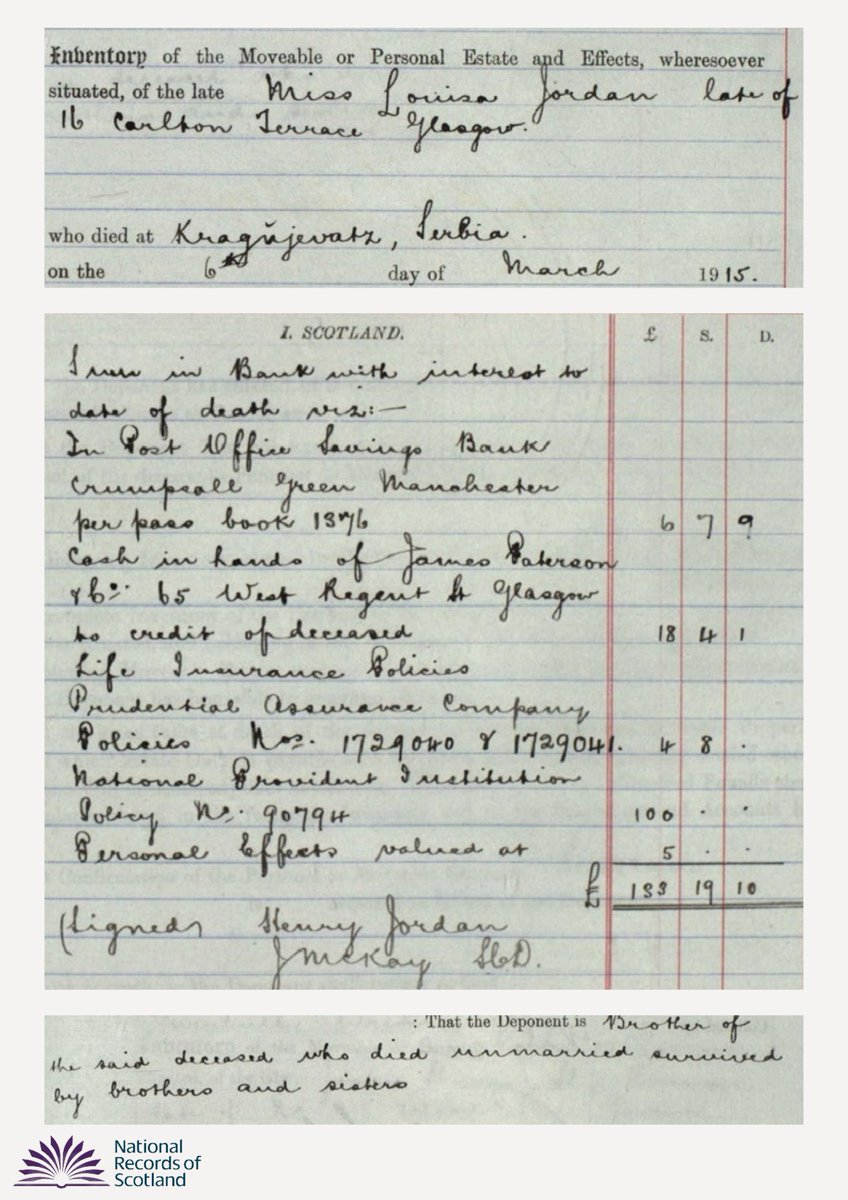 Inventory of the Moveable or Personal Estate and Effects, wheresoever
situated, of the late Miss Louisa Jordan late of
16 Carlton Terrace Glasgow.
who died at Kragŭjevatz, Serbia.
on the 6th day of March 1915.
I. SCOTLAND. £ S. D.
Sum in Bank with interest to
date of death viz:—
In Post Office Savings Bank
Crumpsall Green Manchester
per pass book 1376 6 7 9
Cash in hands of James Paterson
& Co. 65 West Regent St Glasgow
to credit of deceased 18 4 1
Life Insurance Policies
Prudential Assurance Company
Policies Nos. 1729040 & 1729041. 4 8 .
National Provident Institution
Policy No. 90794 100 . .
Personal Effects valued at 5 . .
£ 133 19 10
(Signed) Henry Jordan
J McKay
: That the Deponent is Brother of
the said deceased who died unmarried survived
by brothers and sisters
National
Records of
Scotland